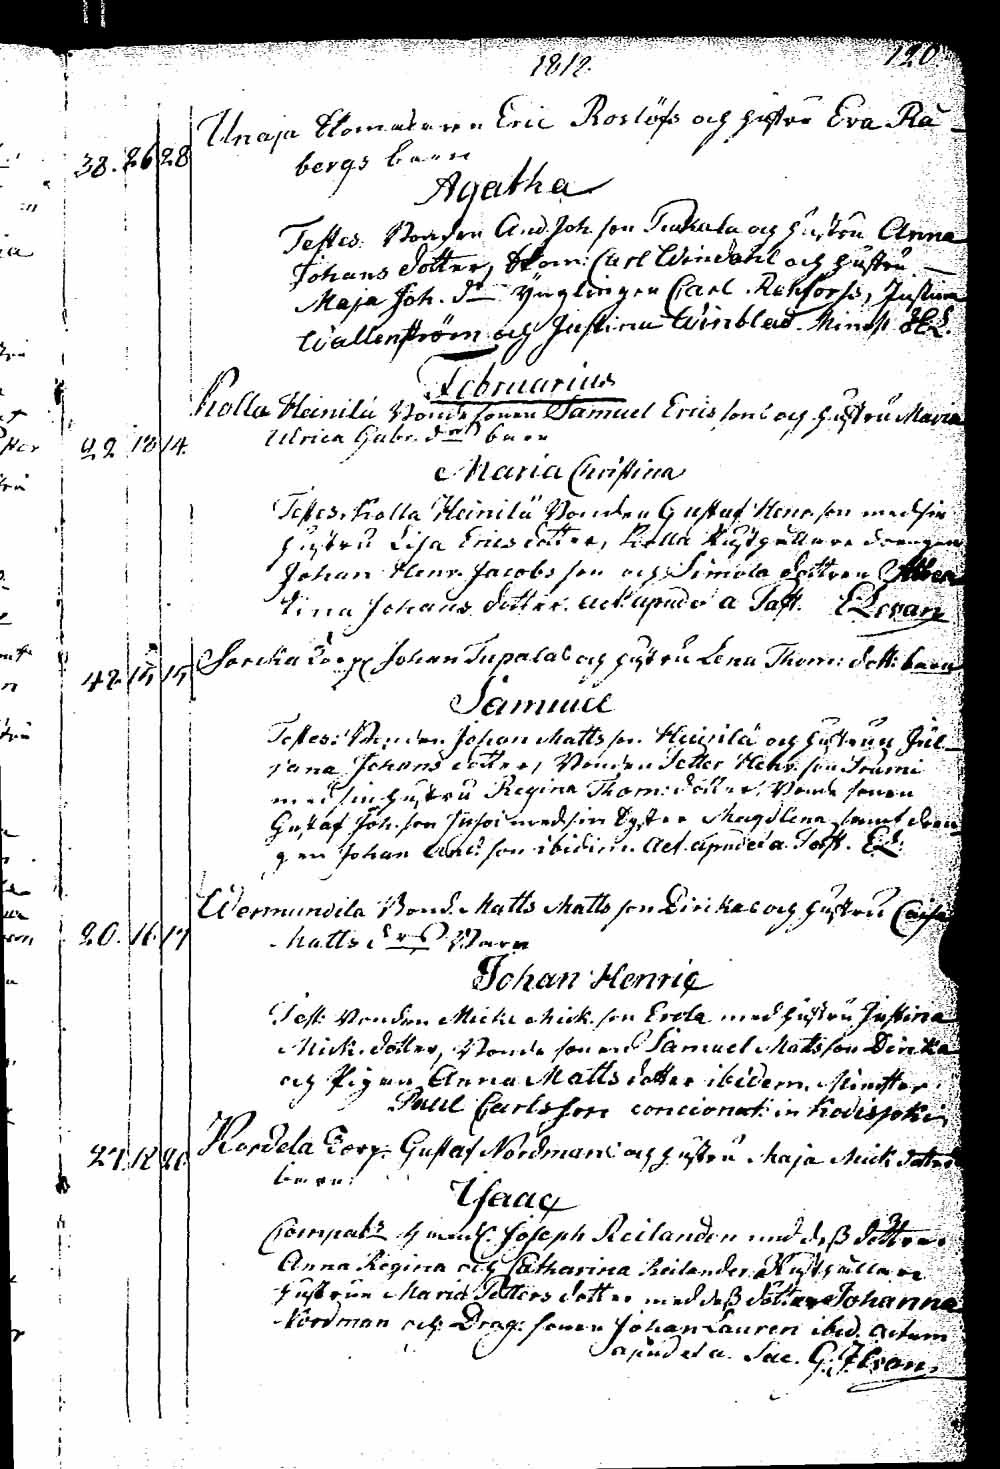 1812.
120.
38. 26 28 Unaja Skomakaren Eric Roslöfs och hustru Eva Rå-
bergs barn
Agatha
Testes. Bonden And. Joh. son Tuckala och hustru Anna
Johans dotter, Skom: Carl Windahl och hustru
Maja Joh. dr Ynglingen Carl Rehforss, Justina
Wallenström och Justina Winblad. Minist.
Februarius
22 13 14. Kolla Heinilä Bondesonen Samuel Erics sons och hustru Maria
Ulrica Gabr. drs barn
Maria Christina
Testes. Kolla Heinilä Bonden Gustaf Henr. son med sin
hustru Lisa Erics dotter, Kolla Rusthållare drengen
Johan Henr. Jacobs son och Simola dottren Alber
tina Johans dotter. act. apud a Past. E Levan
42. 15 Sorcka Corp. Johan Tupalas och hustru Lena Thom: dott: barn
Samuel
Testes: Bonden Johan Matts son Heinilä och hustrun Jul-
jana Johans dotter, Bonden Petter Henr. son
med sin hustru Regina Thom: dotter, Bonde sonen
Gustaf Joh. son med sin Syster Magdlena samt dren
gen Johan And. son ibidim. Act. apud a Past. EL.
20. 16. 17 Wermundila Bond. Matts Matts son Dirikas och hustru Caisa
Matts drs Barn
Johan Henric
Test. Bonden Mick: Mick. son Erola med hustru Justina
Mick. dotter, Bonde sonen Samuel Matts son Dirika
och Pigan Anna Matts dotter ibidem. Minister
Paul Carlsson concionat. in Kodisjoki
27. 18 20. Kordela Corp. Gustaf Nordmans och hustru Maja Mick dotters
barn:
Isaac
Compatr. Joseph Reilanden med dess dottrar
Anna Regina och Catharina Reilander, Rusthållare
hustrun Maria Petters dotter med dess dotter Johanna
Nordman och Drag: sonen Johan Lauren ibid. actum
apud a. Sac. G. Levan.